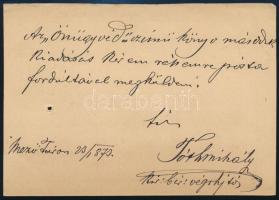 Az „Önügyvéd” czimü könyv második
kiadását kérem részemre posta
fordultával megküldeni!
Tóth Mihály
Mező Túron 23/1 873.
kir. bír. végrehajtó